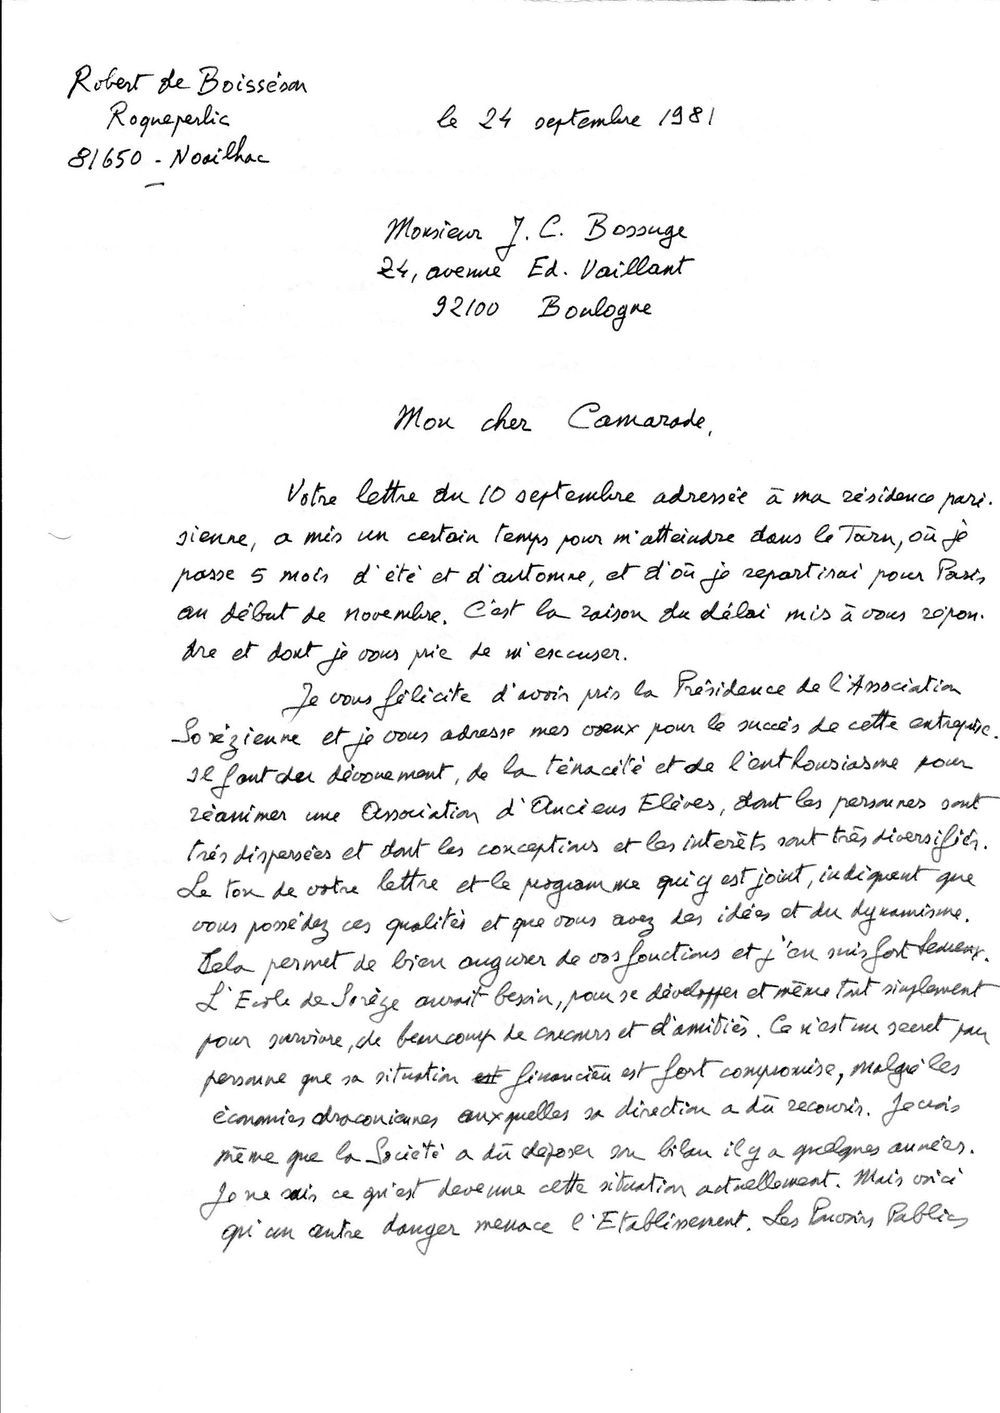 Robert de Boisséson
Roqueperlic
81650 - Noailhac
le 24 septembre 1981
Monsieur J. C. Bossuge
24, avenue Ed. Vaillant
92100 Boulogne
Mon cher Camarade,
Votre lettre du 10 septembre adressée à ma résidence pari-
sienne, a mis un certain temps pour m'atteindre dans le Tarn, où je
passe 5 mois d'été et d'automne, et d'où je repartirai pour Paris
au début de novembre. C'est la raison du délai mis à vous répon-
dre et dont je vous prie de m'excuser.
Je vous félicite d'avoir pris la Présidence de l'Association
Sorézienne et je vous adresse mes vœux pour le succès de cette entreprise.
Il faut du dévouement, de la ténacité et de l'enthousiasme pour
réanimer une Association d'Anciens Elèves, dont les personnes sont
très dispersées et dont les conceptions et les intérêts sont très diversifiés.
Le ton de votre lettre et le programme qui y est joint, indiquent que
vous possédez ces qualités et que vous avez des idées et du dynamisme.
Cela permet de bien augurer de vos fonctions et j'en suis fort heureux.
L'Ecole de Sorèze aurait besoin, pour se développer et même tout simplement
pour survivre, de beaucoup de concours et d'amitiés. Ce n'est un secret pour
personne que sa situation est financière est fort compromise, malgré les
économies draconiennes auxquelles sa direction a dû recourir. Je crois
même que la Société a dû déposer son bilan il y a quelques années.
Je ne sais ce qu'est devenue cette situation actuellement. Mais voici
qu'un autre danger menace l'Etablissement. Les Pouvoirs Publics